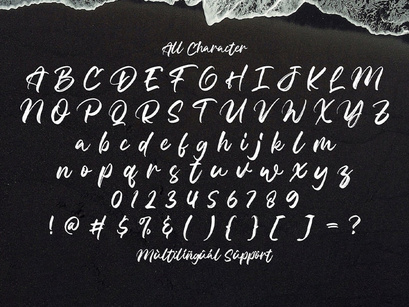 All Character
A B C D E F G H I J K L M
N O P Q R S T U V W X Y Z
a b c d e f g h i j k l m
n o p q r s t u v w x y z
0 1 2 3 4 5 6 7 8 9
! @ # $ % & ( ) { } [ ] = ?
Mùltilìngùàl Sùppòrt